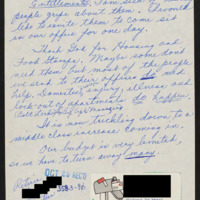 Entitlements.
people gripe about them, I would
like to invite them to come sit
in our office for one day.
Thank God for Housing and
Food Stamps. Maybe some dont
need them but most of the people
we send to their offices do need
help. Domestic injury, illness and
lock-out of apartments do happen.
It is now trickling down to a
middle class increase coming in.
Our budget is very limited,
so we have to turn away many
OCT